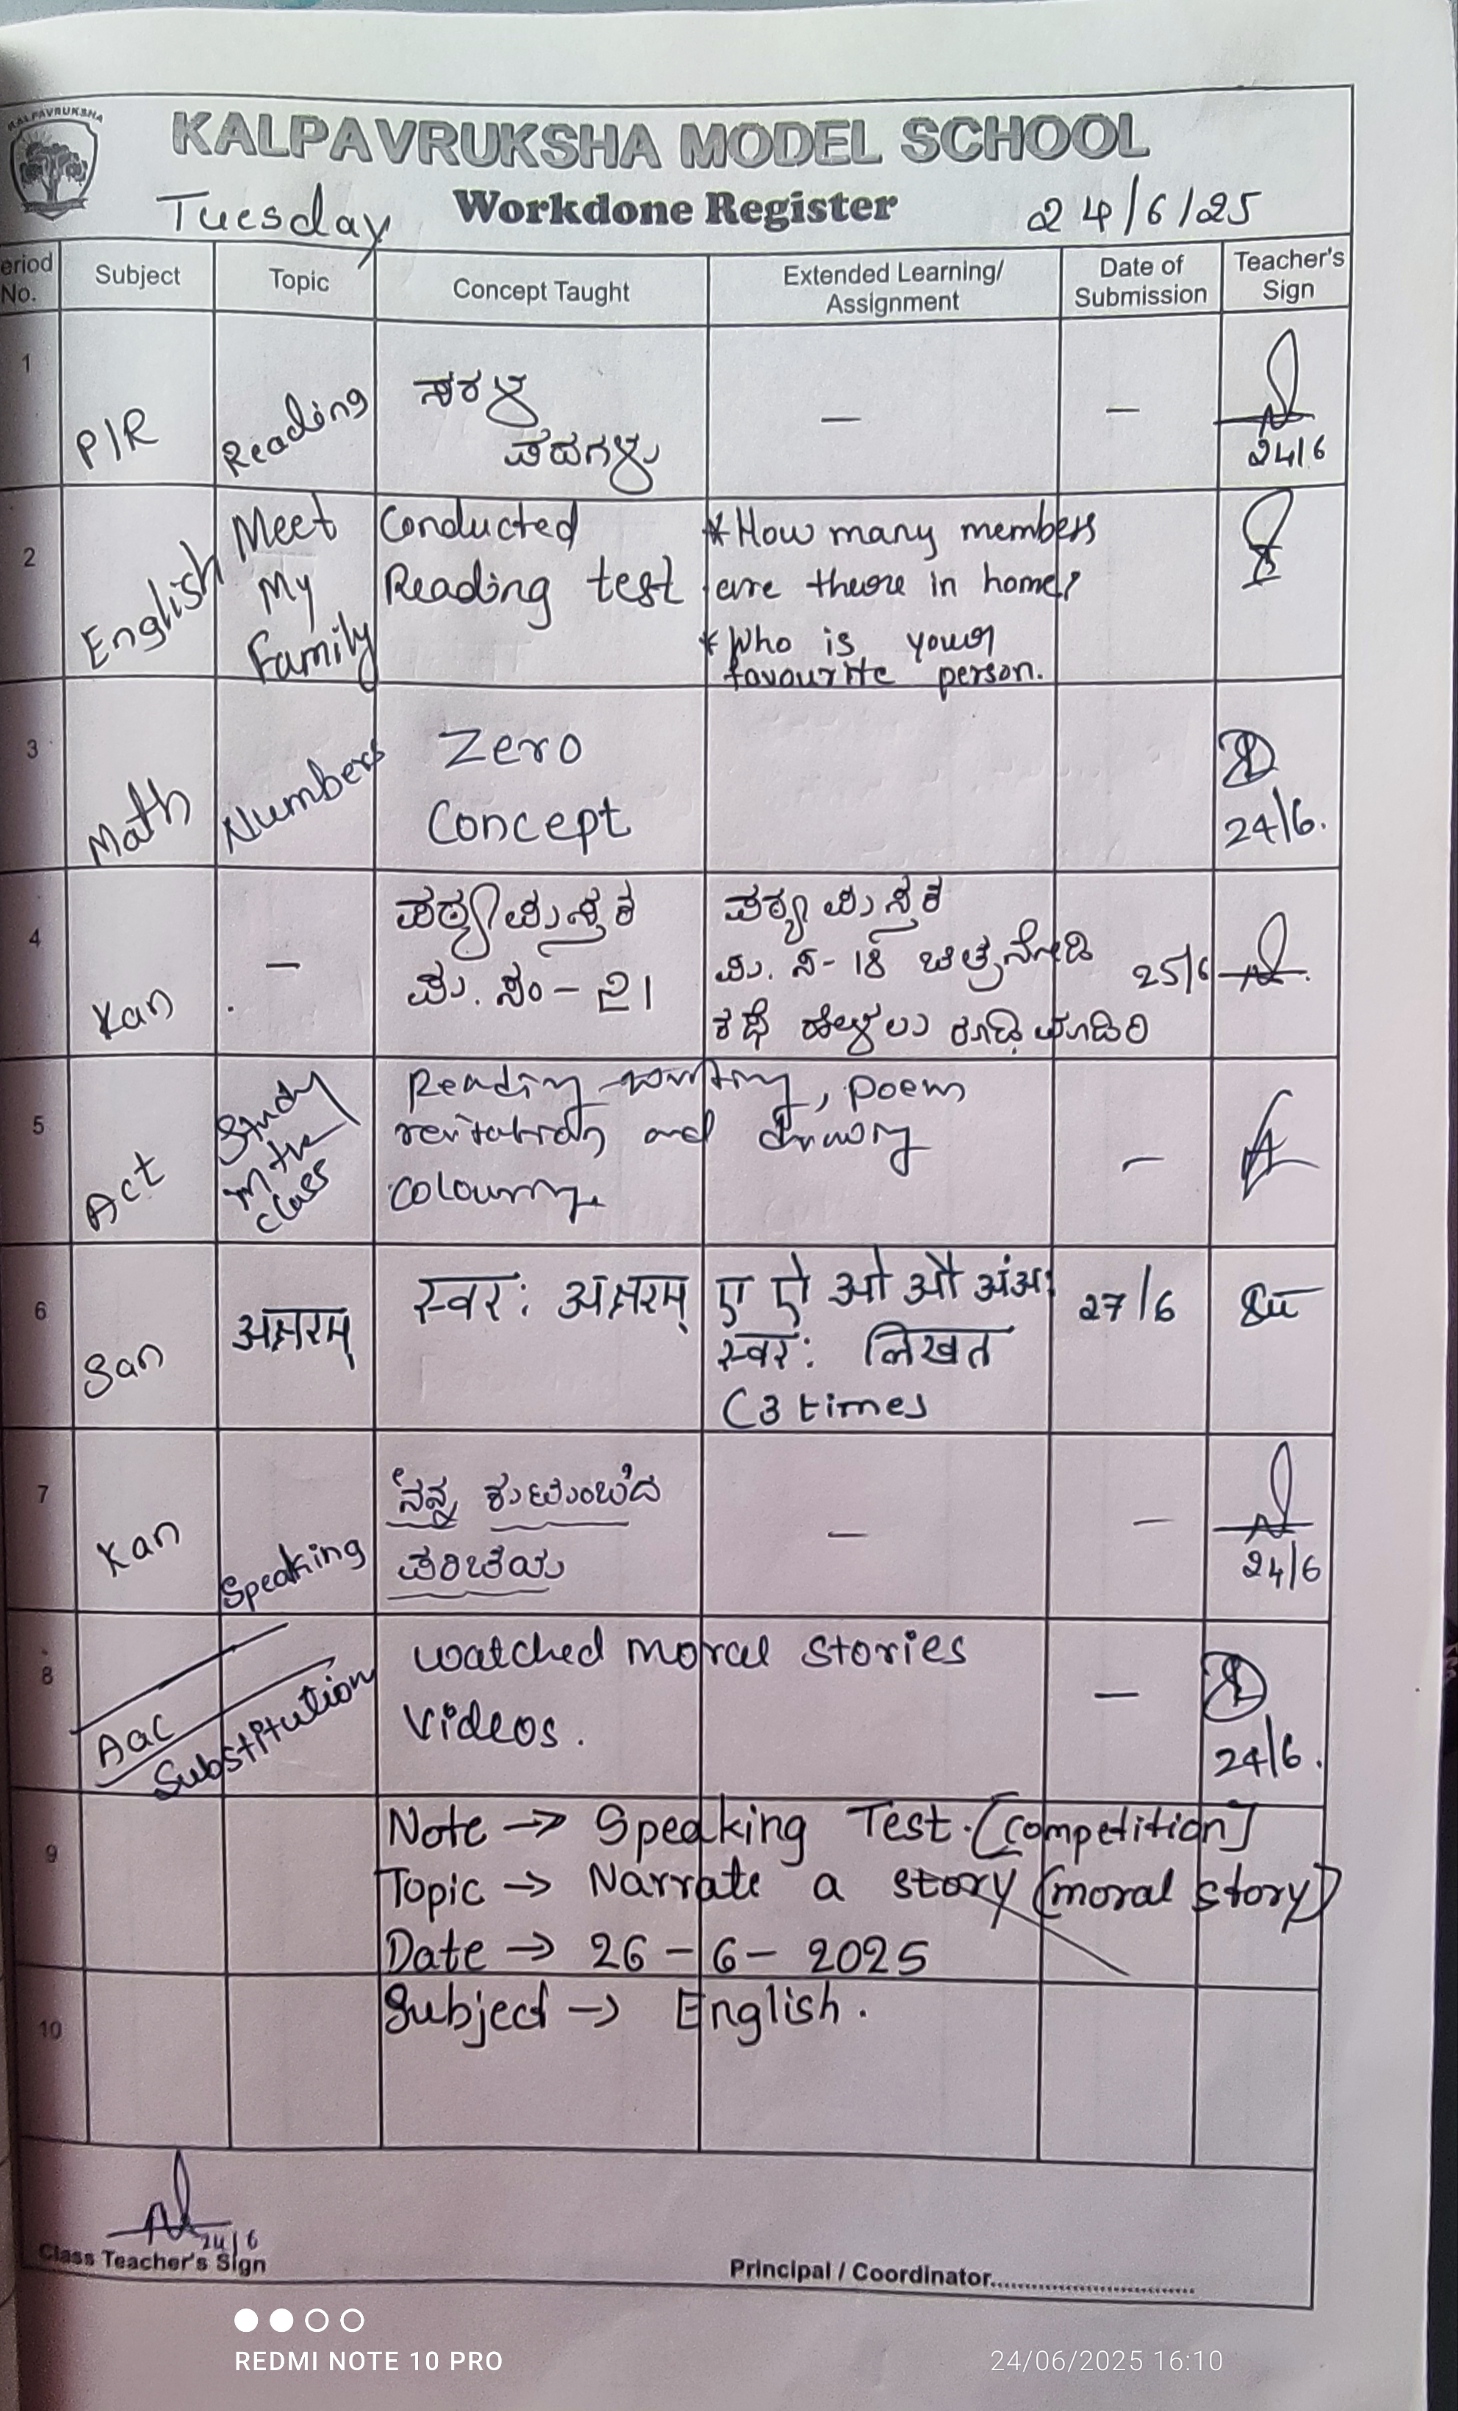 KALPAVRUKSHA
KALPAVRUKSHA MODEL SCHOOL
Tuesday Workdone Register 24/6/25
eriod No. Subject Topic Concept Taught Extended Learning/ Assignment Date of Submission Teacher's Sign
1 P/R Reading ಸರಳ — —
ಪದಗಳು
24/6
2 English Meet My Family Conducted
Reading test
* How many members
are there in home?
* Who is your
favourite person.
3 Math Numbers Zero
Concept
24/6.
4 Kan — ಪಠ್ಯ ಪುಸ್ತಕ
ಪು. ಸಂ - 21
ಪಠ್ಯ ಪುಸ್ತಕ
ಪು. ಸ - 18 ಚಿತ್ರ ನೋಡಿ
ಕಥೆ ಹೇಳಲು ರೂಢಿ ಮಾಡಿರಿ
25/6
5 Act Study in the class Reading writing, poem
recitation and drawing
colouring
—
6 San अक्षरम् स्वर: अक्षरम्
ए ऐ ओ औ अं अः
स्वर: लिखत
(3 times
27/6
7 Kan Speaking ನನ್ನ ಕುಟುಂಬದ
ಪರಿಚಯ
— —
24/6
8 Aac Substitution watched moral stories
videos.
—
24/6.
9 Note → Speaking Test. [competition]
Topic → Narrate a story (moral story)
Date → 26-6-2025
10 Subject → English.
24/6
Class Teacher's Sign
Principal / Coordinator
REDMI NOTE 10 PRO
24/06/2025 16:10